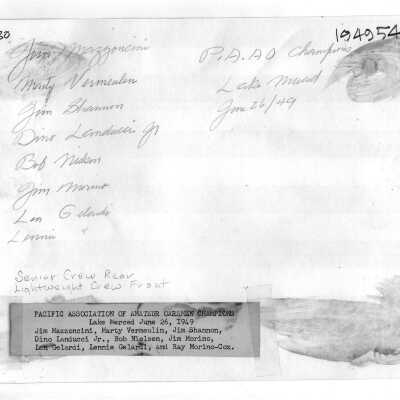 30
194954
Jim Mazzoncini
Marty Vermeulen
Jim Shannon
Dino Landucci Jr
Bob Nielson
Jim Morino
Len Gelardi
Lennie "
P.A.A.O Champions
Lake Merced
June 26/49
Senior Crew Rear
Lightweight Crew Front
PACIFIC ASSOCIATION OF AMATEUR OARSMEN CHAMPIONS
Lake Merced June 26, 1949
Jim Mazzoncini, Marty Vermeulin, Jim Shannon,
Dino Landucci Jr., Bob Nielsen, Jim Morino,
Len Gelardi, Lennie Gelardi, and Ray Morino-Cox.